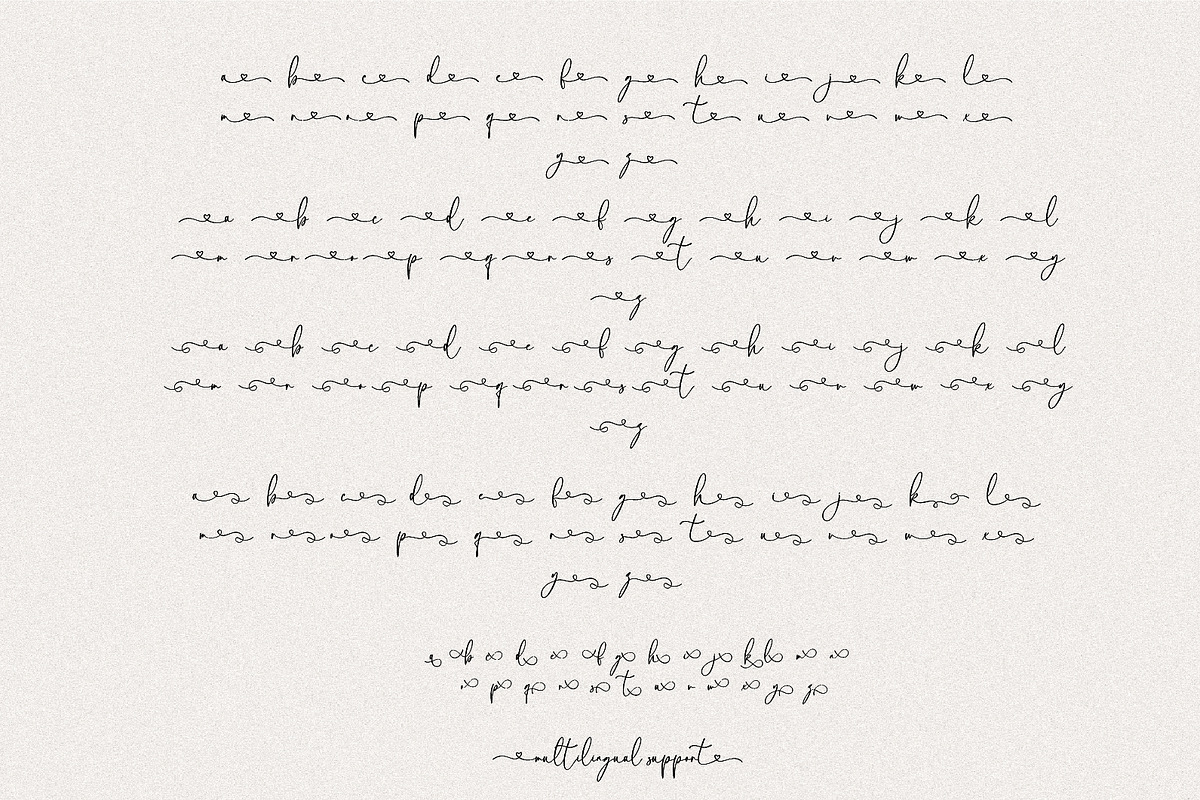 a b c d e f g h i j k l
m n o p q r s t u v w x
y z
a b c d e f g h i j k l
m n o p q r s t u v w x y
z
a b c d e f g h i j k l
m n o p q r s t u v w x y
z
a b c d e f g h i j k l
m n o p q r s t u v w x
y z
a b c d e f g h i j k l m n
o p q r s t u v w x y z
multilingual support